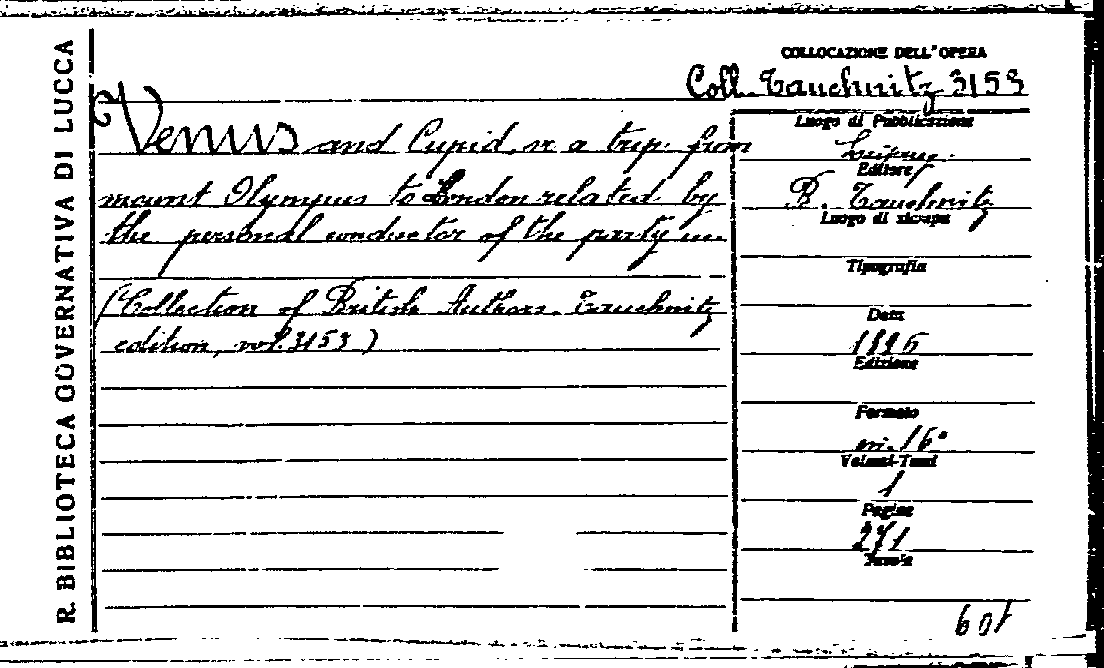 R. BIBLIOTECA GOVERNATIVA DI LUCCA
COLLOCAZIONE DELL'OPERA
Coll. Tauchnitz 3153
Venus and Cupid or a trip from
mount Olympus to London related by
the personal conductor of the party
(Collection of British Authors. Tauchnitz
edition, vol. 3153)
Luogo di Pubblicazione
Editore
B. Tauchnitz
Luogo di stampa
Tipografia
Data
1896
Edizione
Formato
in. 16°
Volumi-Tomi
1
Pagine
271
Tavole
601